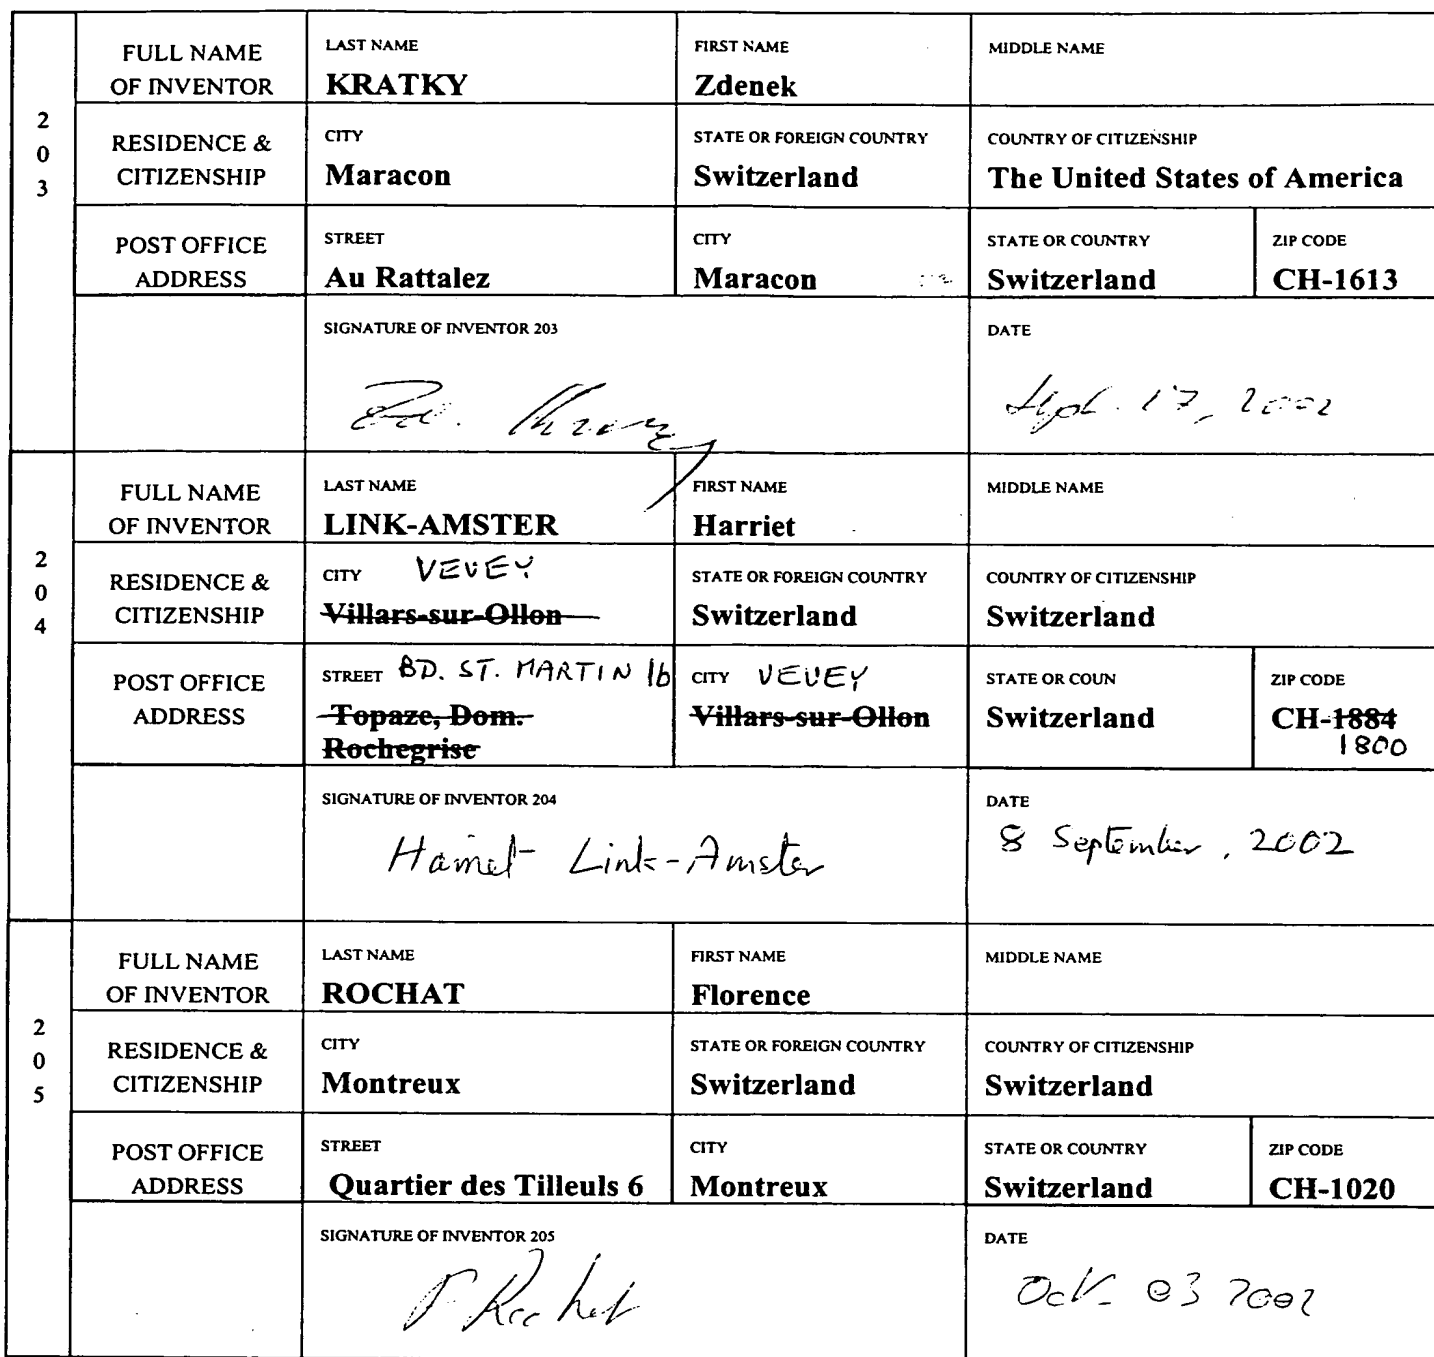 203
FULL NAME OF INVENTOR
LAST NAME
KRATKY
FIRST NAME
Zdenek
MIDDLE NAME
RESIDENCE & CITIZENSHIP
CITY
Maracon
STATE OR FOREIGN COUNTRY
Switzerland
COUNTRY OF CITIZENSHIP
The United States of America
POST OFFICE ADDRESS
STREET
Au Rattalez
CITY
Maracon
STATE OR COUNTRY
Switzerland
ZIP CODE
CH-1613
SIGNATURE OF INVENTOR 203
DATE
Sept. 17, 2002
204
FULL NAME OF INVENTOR
LAST NAME
LINK-AMSTER
FIRST NAME
Harriet
MIDDLE NAME
RESIDENCE & CITIZENSHIP
CITY VEVEY
Villars-sur-Ollon
STATE OR FOREIGN COUNTRY
Switzerland
COUNTRY OF CITIZENSHIP
Switzerland
POST OFFICE ADDRESS
STREET BD. ST. MARTIN 16
Topaze, Dom.
Rochegrise
CITY VEVEY
Villars-sur-Ollon
STATE OR COUN
Switzerland
ZIP CODE
CH-1884
1800
SIGNATURE OF INVENTOR 204
Harriet Link-Amster
DATE
8 September, 2002
205
FULL NAME OF INVENTOR
LAST NAME
ROCHAT
FIRST NAME
Florence
MIDDLE NAME
RESIDENCE & CITIZENSHIP
CITY
Montreux
STATE OR FOREIGN COUNTRY
Switzerland
COUNTRY OF CITIZENSHIP
Switzerland
POST OFFICE ADDRESS
STREET
Quartier des Tilleuls 6
CITY
Montreux
STATE OR COUNTRY
Switzerland
ZIP CODE
CH-1020
SIGNATURE OF INVENTOR 205
F Rochat
DATE
Oct. 03 2002